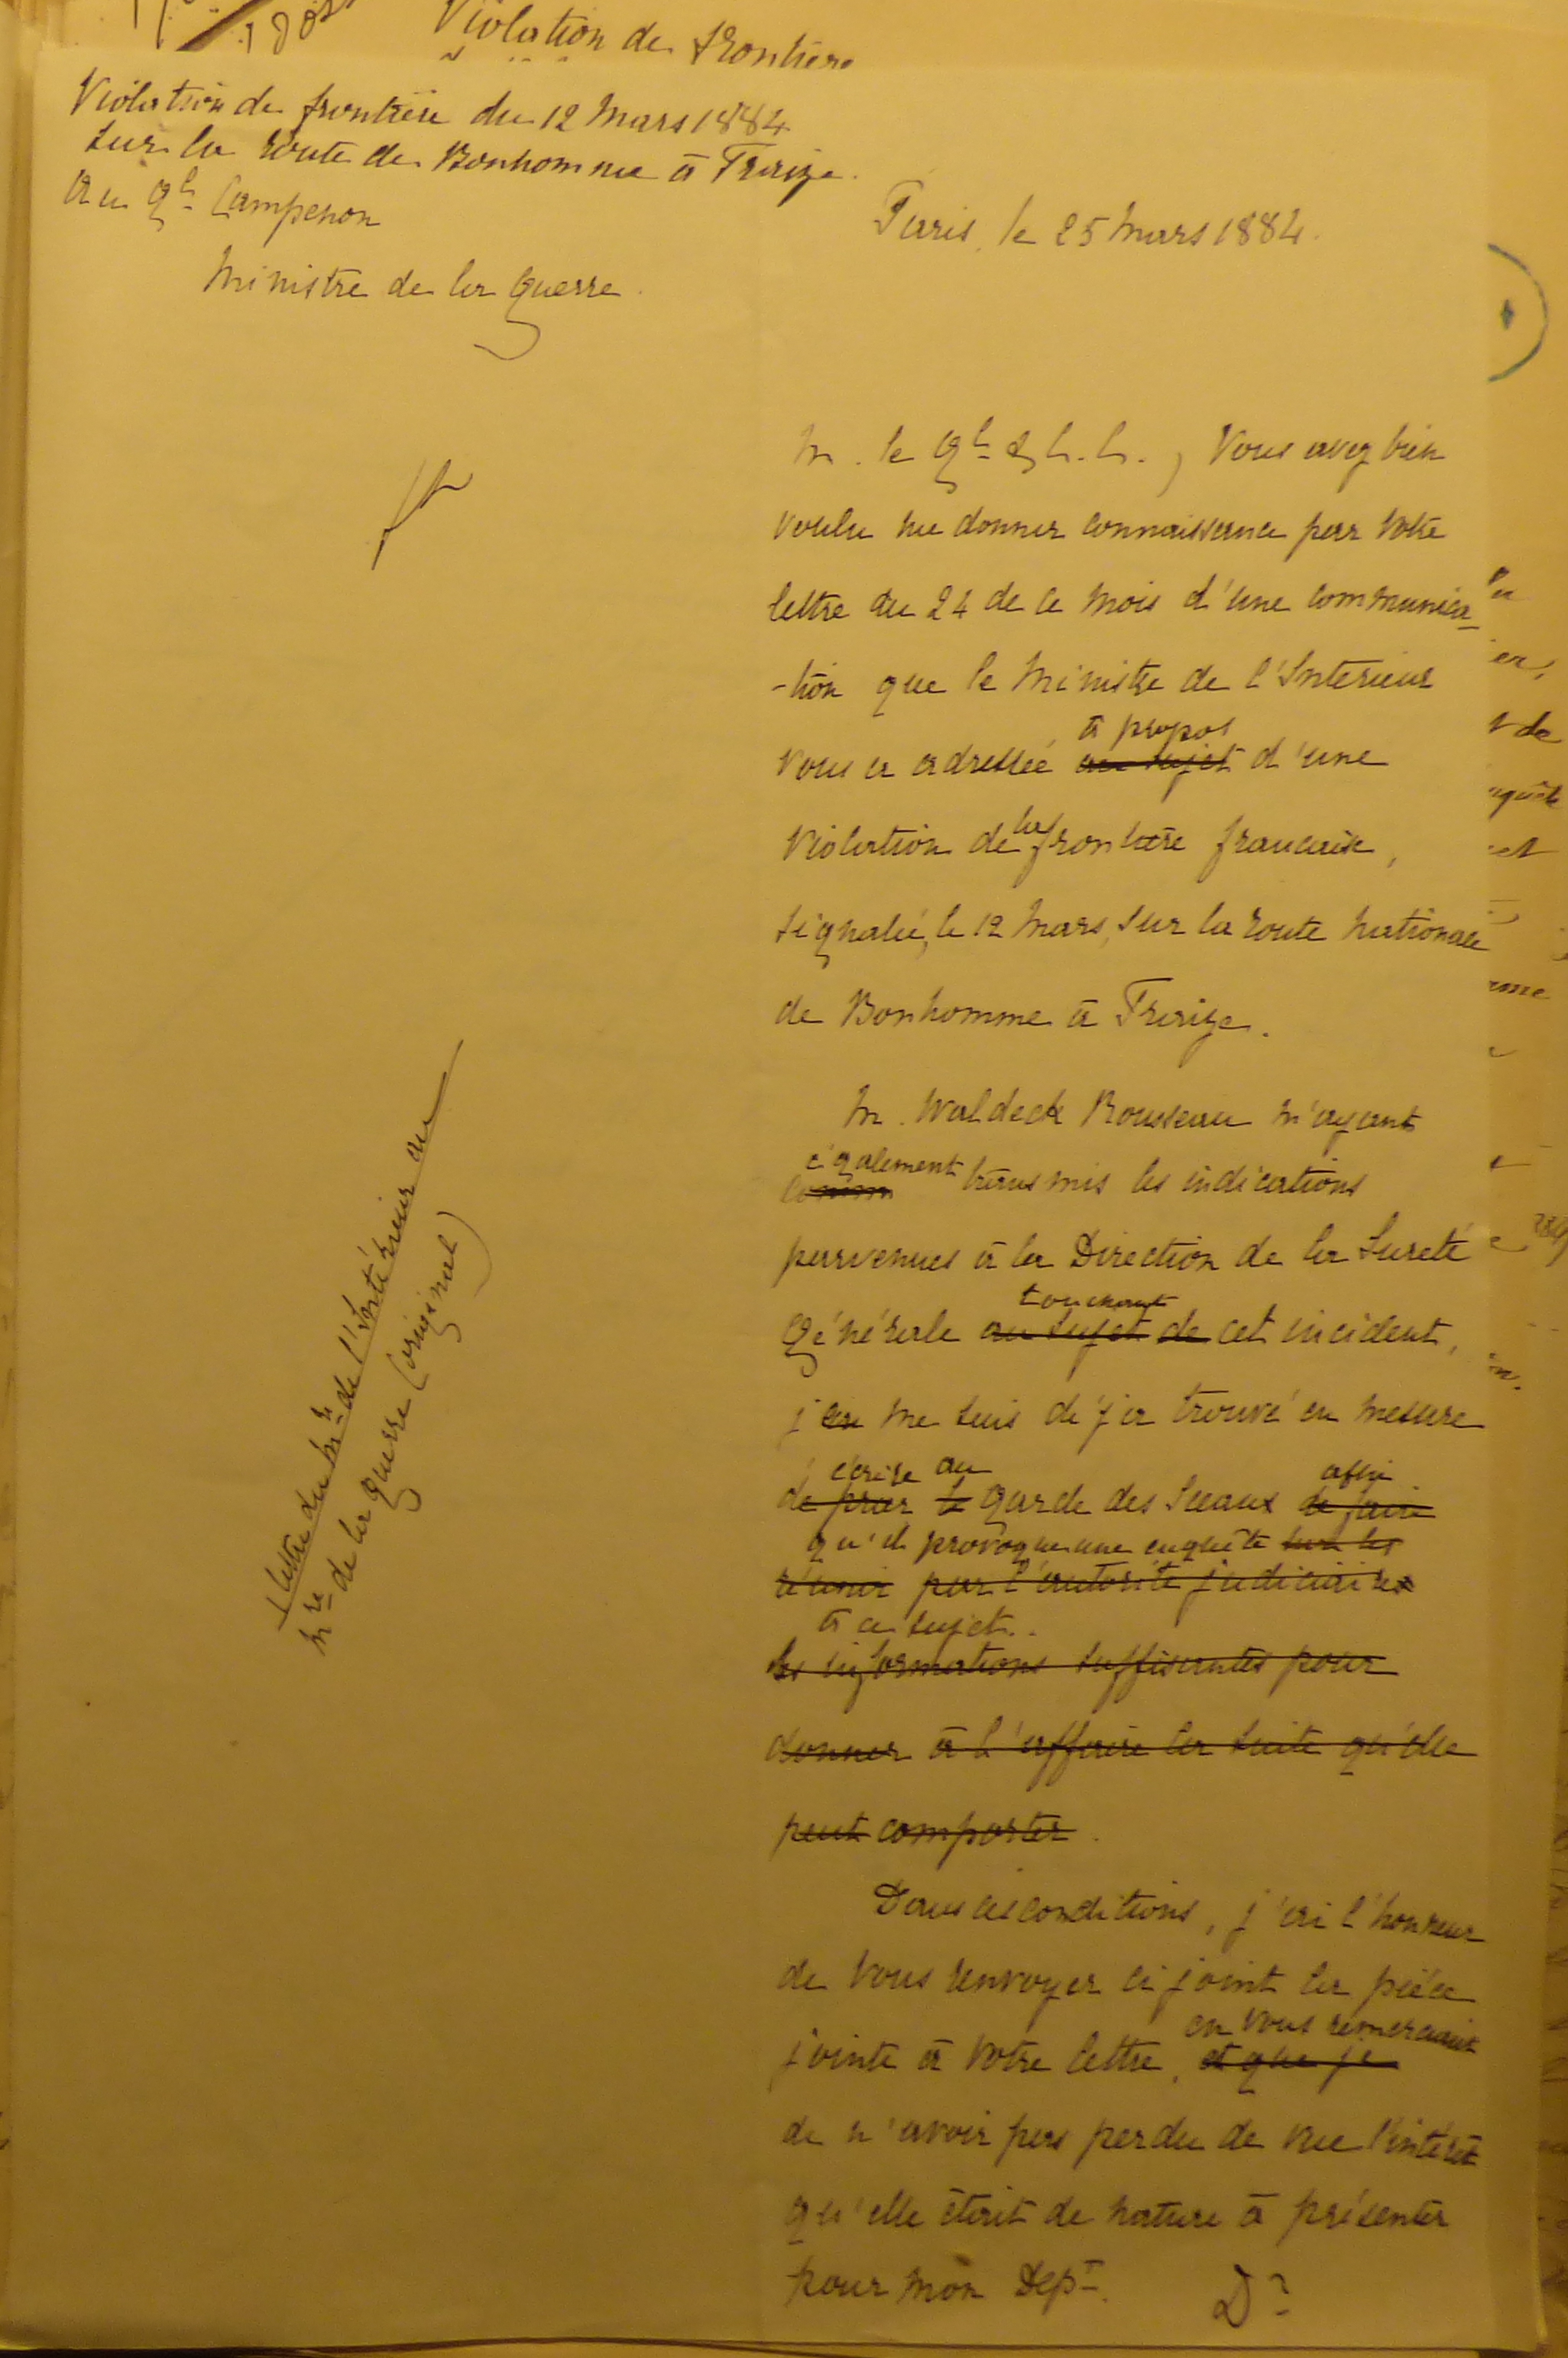 Violation de frontière
Violation de frontière du 12 Mars 1884
sur la route de Bonhomme à Fraize.
Au Gl Campenon
Ministre de la Guerre.
Paris, le 25 Mars 1884.
M. le Gl & h. C., Vous avez bien
voulu me donner connaissance par votre
lettre du 24 de ce mois d'une communica-
-tion que le Ministre de l'Intérieur
à propos
vous a adressée au sujet d'une
violation de la frontière française,
signalée, le 12 Mars, sur la route nationale
de Bonhomme à Fraize.
M. Waldeck Rousseau m'ayant
également
comm transmis les indications
parvenues à la Direction de la Sureté
touchant
Générale au sujet de cet incident,
je me suis déja trouvé en mesure
d'écrire au afin
de prier le Garde des Sceaux de faire
qu'il provoque une enquête sur les
réunir par l'autorité judiciaire
à ce sujet.
les informations suffisantes pour
donner à l'affaire la suite qu'elle
peut comporter.
Dans ces conditions, j'ai l'honneur
de vous renvoyer ci joint la pièce
en vous remerciant
jointe à votre lettre, et que je
de n'avoir pas perdu de vue l'intérêt
qu'elle était de nature à présenter
pour mon Dépt.
1 lettre du Mre de l'Intérieur au
Mre de la guerre (original)